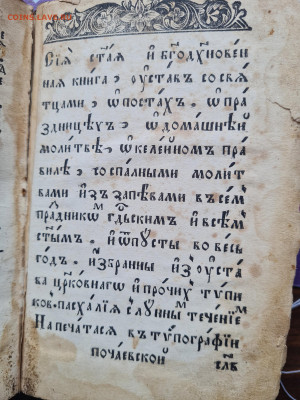 COINS.SU
Сїѧ ст҃аѧ и҆ бг҃одꙋхнове́н
наѧ книга, ꙋ҆ставъ со свѧ
тцами, ѡ҆ постахъ, ѡ҆ пра
здницѣхъ, ѡ҆ домашнѣй
молитвѣ, ѡ҆ келейномъ пра
вилѣ, со спалными моли́т
вами и҆ зъ запѣвами въ се́м
пра́дникѡⷨ гдⷭ҇ьскимъ и҆ всѣⷨ
ст҃ымъ. и҆ ѿпꙋсты во весь
годъ. и҆збранны и҆з̾ ꙋ҆ста
ва цр҃ковнагѡ и҆ про́чиⷯ тѵпи
ковъ. пасхалїѧ с̾лꙋнныⷨ тече́нїеⷨ
Напечатасѧ въ тѵпографїи
почаевской